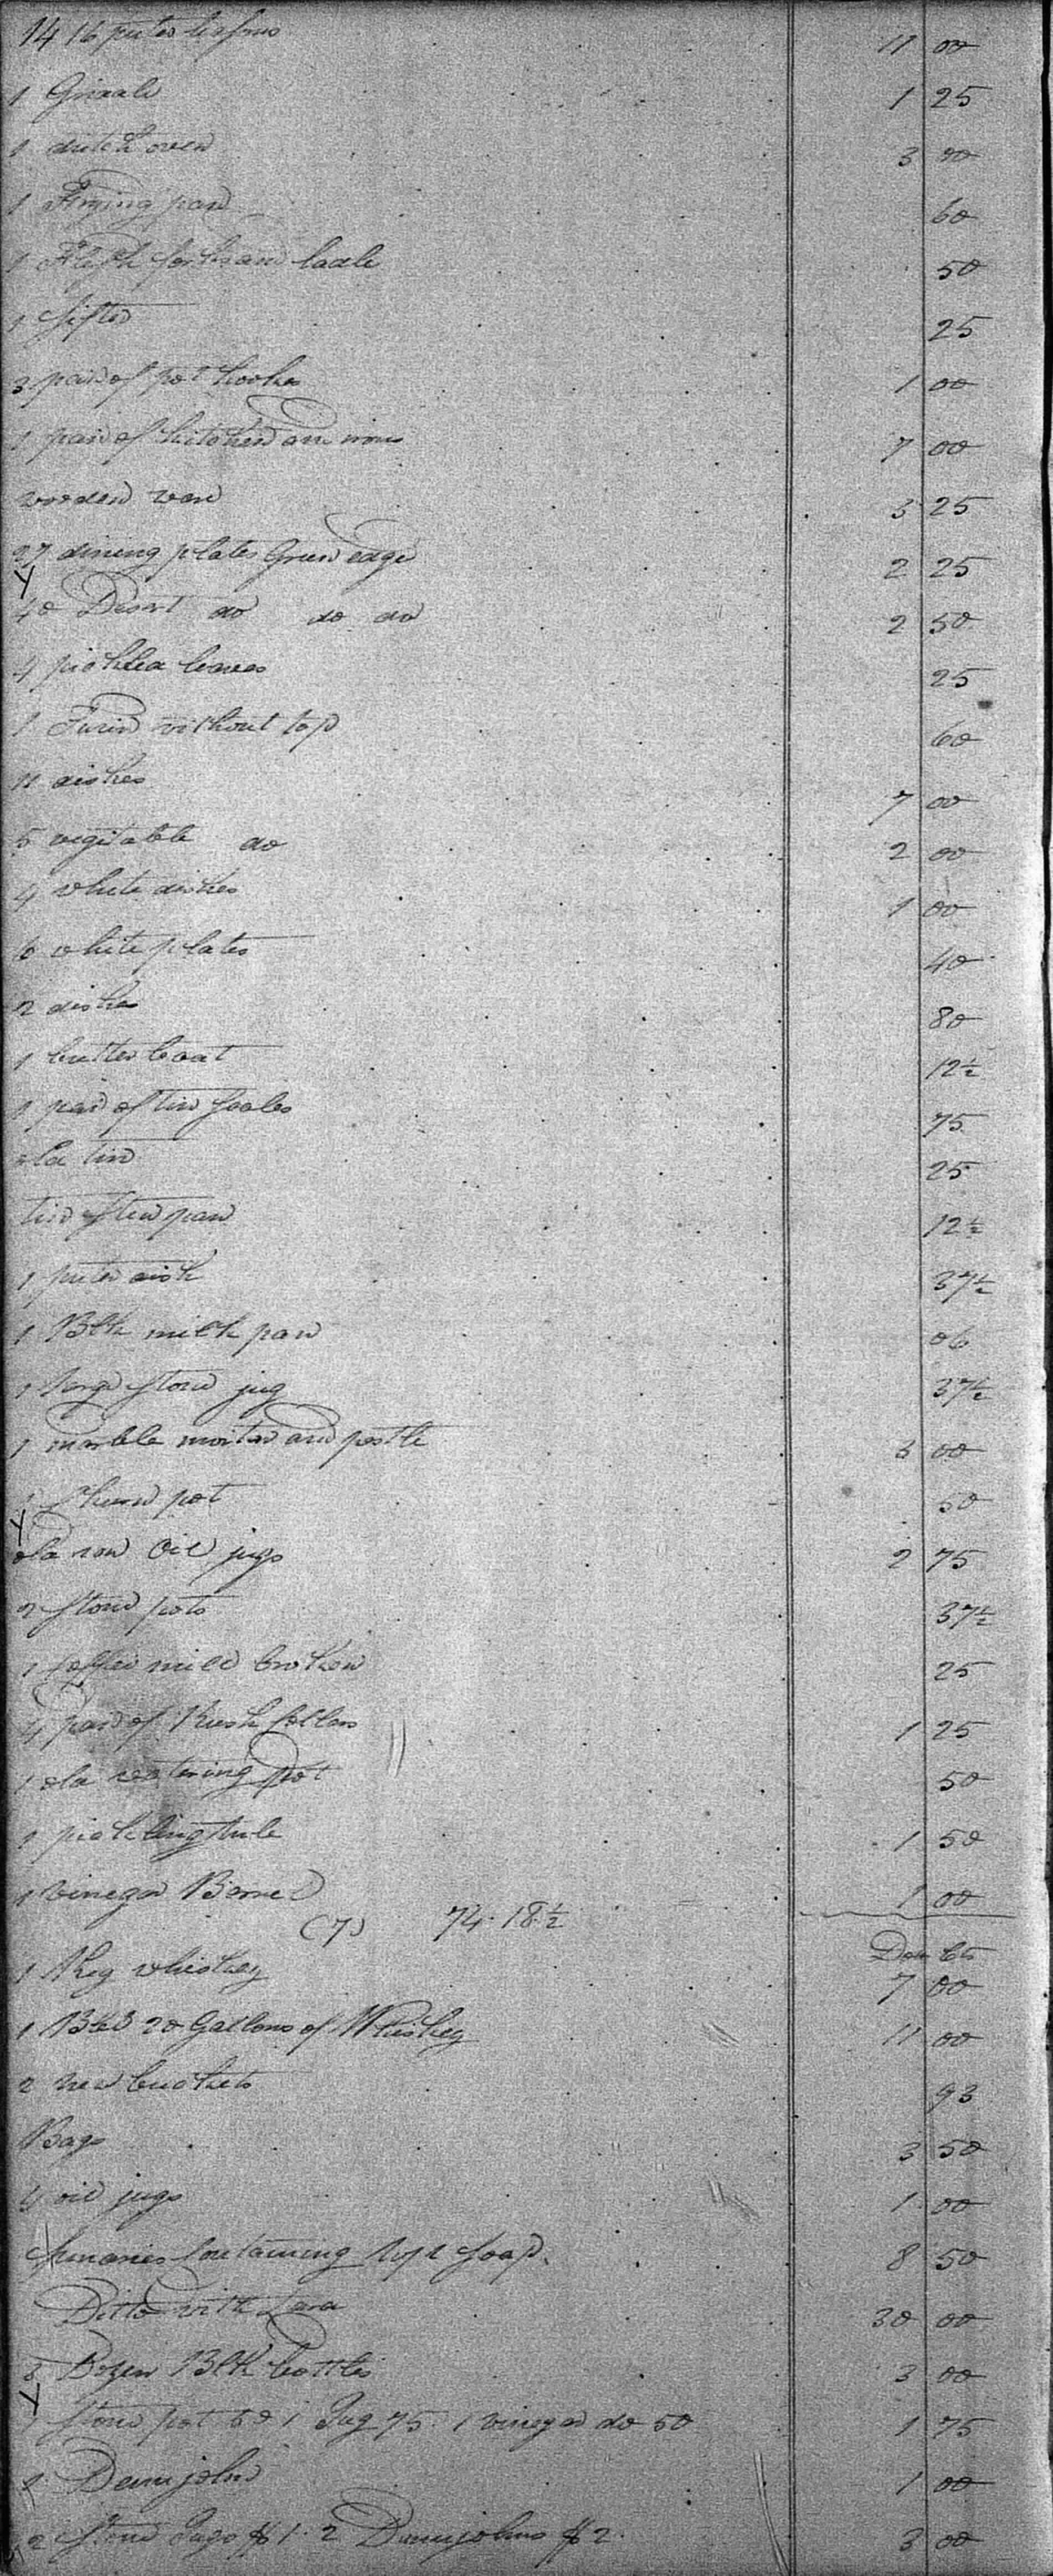 14 16 puter basons 11 00
1 Gridale 1 25
1 dutch oven 3 00
1 Frying pan 60
1 Flesh fork and ladle 50
1 Sifter 25
3 pair of pot hooks 1 00
1 pair of kitchen and irons 7 00
wooden ware 3 25
27 dining plates Green edge 2 25
40 Desert do do do 2 50
4 pickled leaves 25
1 Turin without top 60
11 dishes 7 00
5 vegitable do 2 00
4 white dishes 1 00
6 white plates 40
2 dishes 80
1 butter boat 12½
1 pair of tin Scales 75
old tin 25
tin Stew pan 12½
1 puter dish 37½
1 Blk milk pan 06
1 large Stone jug 37½
1 marble mortar and pestle 3 00
1 Churn pot 50
old row Oil jugs 2 75
2 Stone pots 37½
1 Coffee mill broken 25
4 pair of Rush Collars 1 25
1 old watering pot 50
1 pickling tube 1 50
1 vinegar Barrel 1 00
(7) 74.18½
Dou Cts
1 Kheg whiskey 7 00
1 Bbl 20 Gallons of Whiskey 11 00
2 new buckets 93
Bags 3 50
4 oil jugs 1 00
containing Soap 8 50
Ditto with Lard 30 00
3 Dozen Blk bottles 3 00
1 Stone pot 50 1 Jug 75. 1 vinegar do 50 1 75
1 Demijohn 1 00
2 Stone Jugs $1. 2 Demijohns $2. 3 00